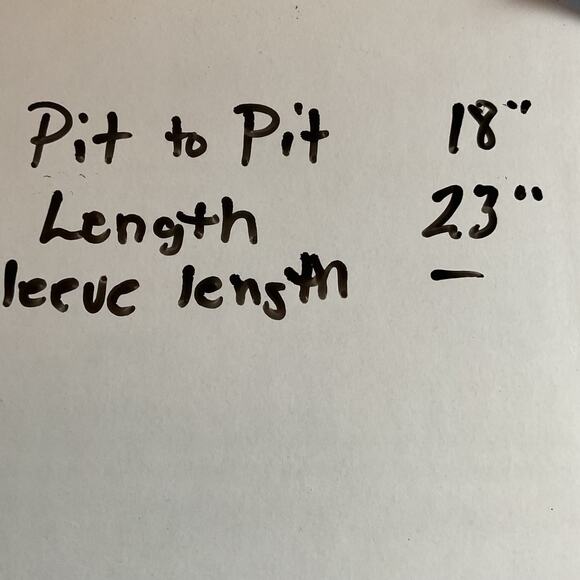 Pit to Pit 18"
Length 23"
leeve length —